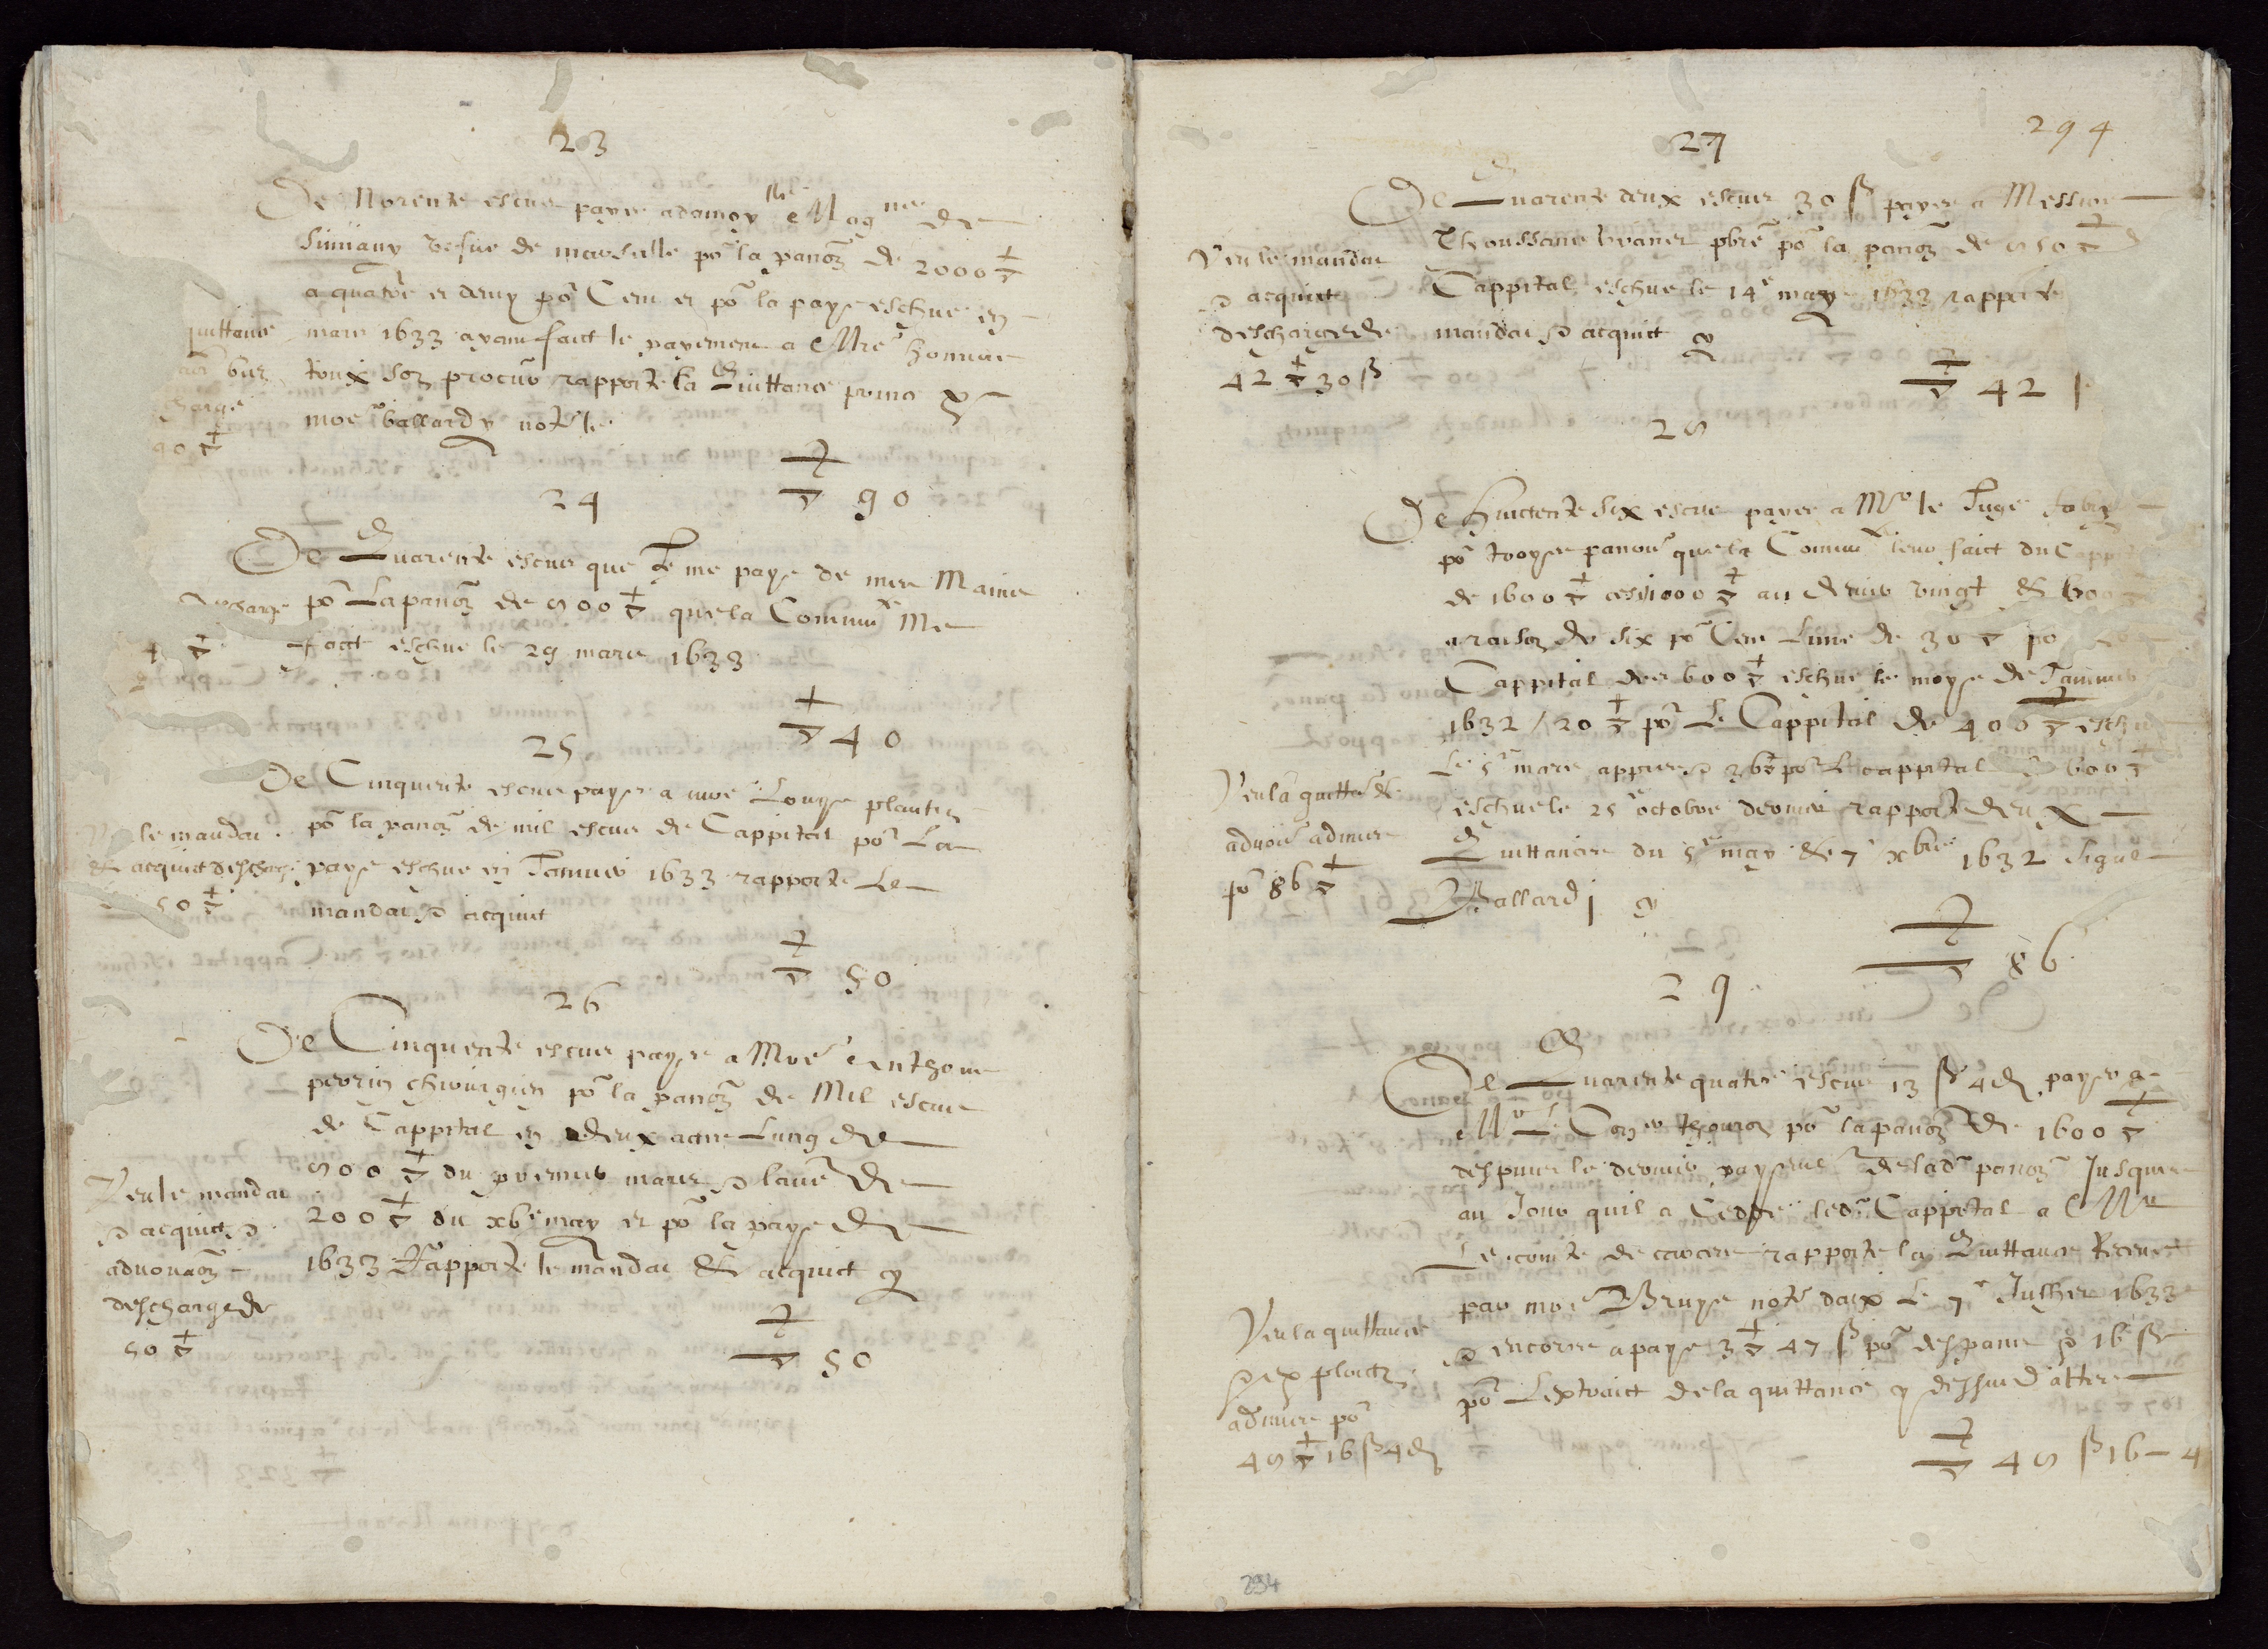 23
De Norente escus payes a damoy^lle Mag^ne de
Simiany vefve de marseille po^r la pan͠on de 2000
a quatre et demy po^r Cent et po^r la paye eschue en
mars 1633 ayant faict le payement a M^re honnore
toux son procur rapporte la Quittance prinse
moe ballardy not^re
quittance
charge
90
90
24
De Quarente escus que Je me paye de mes Mains
po^r La pan͠on de 800 que la Commu^te Me
faict eschue le 29 mars 1633
descharge
40
25
De Cinquente escus payes a moe Louys plantin
po^r la pan͠on de mil escus de Cappital po^r La
paye eschue en Janvier 1633 rapporte Le
mandat & acquit
le mandat
& acquit descharge
50
50
26
De Cinquente escus payes a Moe Anthoine
perrin chirurgien po^r la pan͠on de Mil escus
de Cappital en deux actes Lung de
800 du premier mars & laut^e de
200 du xb^e may et po^r la paye de
1633 Rapporte le mandat & acquict cy
Veu le mandat
& acquict &
advoua͠on
descharge de
50
50
294
27
De Quarente deux escus 30 ß payes a Messire
Thoussans pbre po^r la pan͠on de 850
Cappital eschue le 14^e may 1633 rapporte
mandat & acquict cy
Veu le mandat
& acquict
descharge de
42 30 ß
42
28
De huictente six escus payes a M^r le Juge
po^r troys panons que la Commu^te leur faict du Capp
de 1600 cest 1000 au denier vingt & 600
a raison de six po^r Cent Lune de 30 po
Cappital des 600 eschue le moys de Janvier
1632 / 20 po^r Le Cappital de 400 eschue
Le 5^e mars appres & 36 po^r Le cappital de 600
eschue le 25^e octobre dernier rapporte deux
Quittances du 5^e may & 7^e xbre 1632 Signe
Ballardj cy
Veu la quittance
advoue admise
po^r 86
86
29
De Quarente quatre escus 13 ß 4 d payes a
M^r Le Con^er thoron po^r la pan͠on de 1600
despuis le dernier payement de lad^e pan͠on Jusques
au Jour quil a Cedde led^t Cappital a M^r
Le comte de carces rapporte la Quittance Receue
par moe Bruys not^re daix Le 7^e Julhet 1633
& encores a paye 3 47 ß po^r despans & 16 ß
po^r Lextraict de la quittance cy dessus dattee
Veu la quittance
& exploict
admise po^r
48 16 ß 4 d
48 ß 16 - 4
294